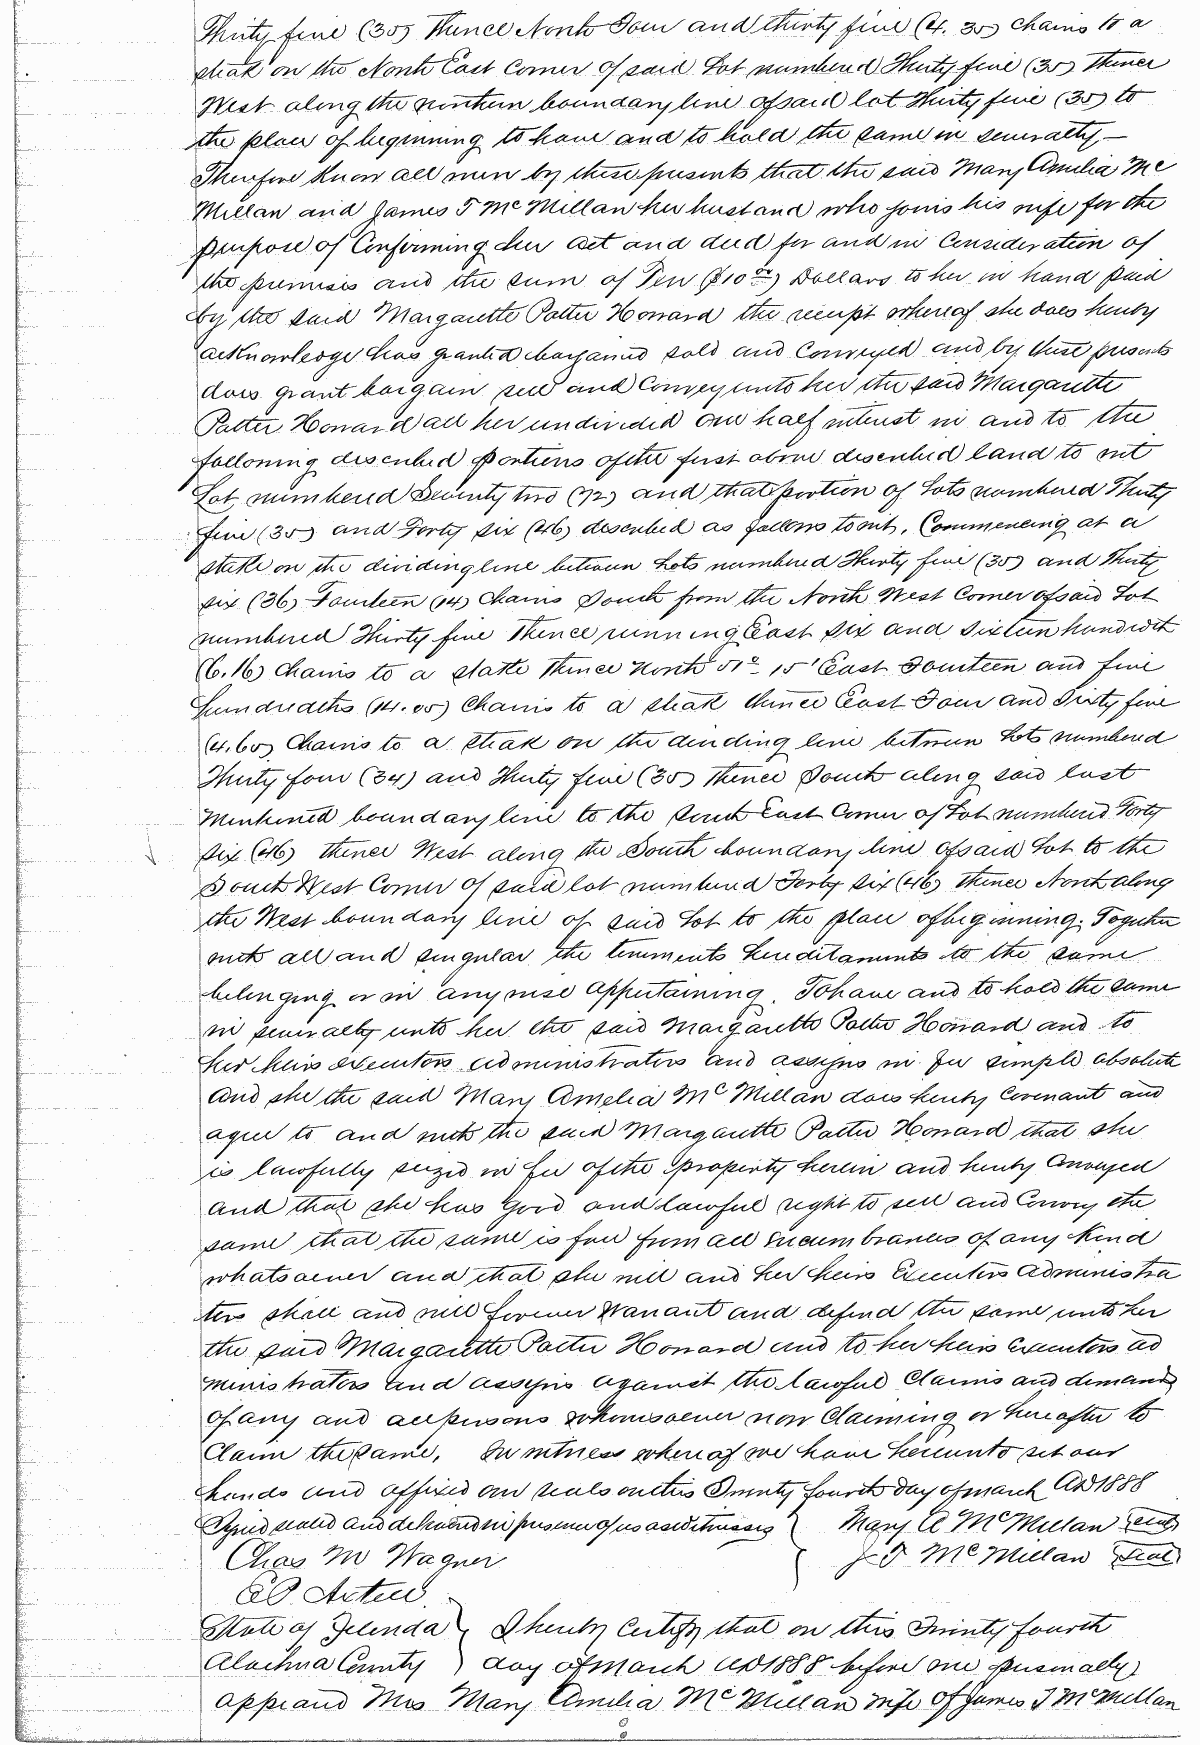 Thirty five (35) Thence North Four and thirty five (4.35) Chains to a
stak on the North East Corner of said Lot numbered Thirty five (35) thence
West along the northern boundary line of said lot Thirty five (35) to
the place of beginning to have and to hold the same in severalty—
Therefore Know all men by these presents that the said Mary Amelia Mc
Millan and James T McMillan her husband who joins his wife for the
purpose of Confirming her act and deed for and in Consideration of
the premises and the sum of Ten ($10 00) Dollars to her in hand paid
by the said Margarette Potter Howard the receipt whereof she does hereby
acknowledge has granted bargained sold and Conveyed and by these presents
does grant bargain sell and Convey unto her the said Margarette
Potter Howard all her undivided one half interest in and to the
following described portions of the first above described land to wit
Lot numbered Seventy two (72) and that portion of Lots numbered Thirty
five (35) and Forty six (46) described as follows to wit, Commencing at a
stake on the dividing line between Lots numbered Thirty five (35) and Thirty
six (36) Fourteen (14) Chains South from the North West Corner of said Lot
numbered Thirty five Thence running East six and sixteen hundredth
(6.16) Chains to a stake Thence North 51° 15' East Fourteen and five
hundredths (14.05) Chains to a stak thence East Four and Sixty five
(4.65) Chains to a stak on the dividing line between Lots numbered
Thirty four (34) and Thirty five (35) Thence South along said last
Mentioned boundary line to the South East Corner of Lot numbered Forty
six (46) thence West along the South boundary line of said Lot to the
South West Corner of said lot numbered Forty six (46) thence North along
the West boundary line of said Lot to the place of beginning. Together
with all and singular the tenements hereditaments to the same
belonging or in anywise appertaining. To have and to hold the same
in severalty unto her the said Margarette Potter Howard and to
her heirs executors administrators and assigns in fee simple absolute
And she the said Mary Amelia McMillan does hereby Covenant and
agree to and with the said Margarette Potter Howard that she
is lawfully seized in fee of the property herein and hereby Conveyed
and that she has good and lawful right to sell and Convey the
same that the same is free from all incumbrances of any Kind
whatsoever and that she will and her heirs Executors Administra
tors shall and will forever Warrant and defend the same unto her
the said Margarette Potter Howard and to her heirs Executors ad
ministrators and assigns against the lawful Claims and demands
of any and all persons whomsoever now Claiming or hereafter to
Claim the same. In witness whereof we have hereunto set our
hands and affixed our seals on this Twenty fourth day of March AD 1888
Signed sealed and delivered in presence of us as witnesses } Mary A McMillan Seal
Chas M Wagner } J T McMillan Seal
State of Florida } I hereby Certify that on this Twenty fourth
Alachua County } day of March AD 1888 before me personally
appeared Mrs Mary Amelia McMillan wife of James T McMillan